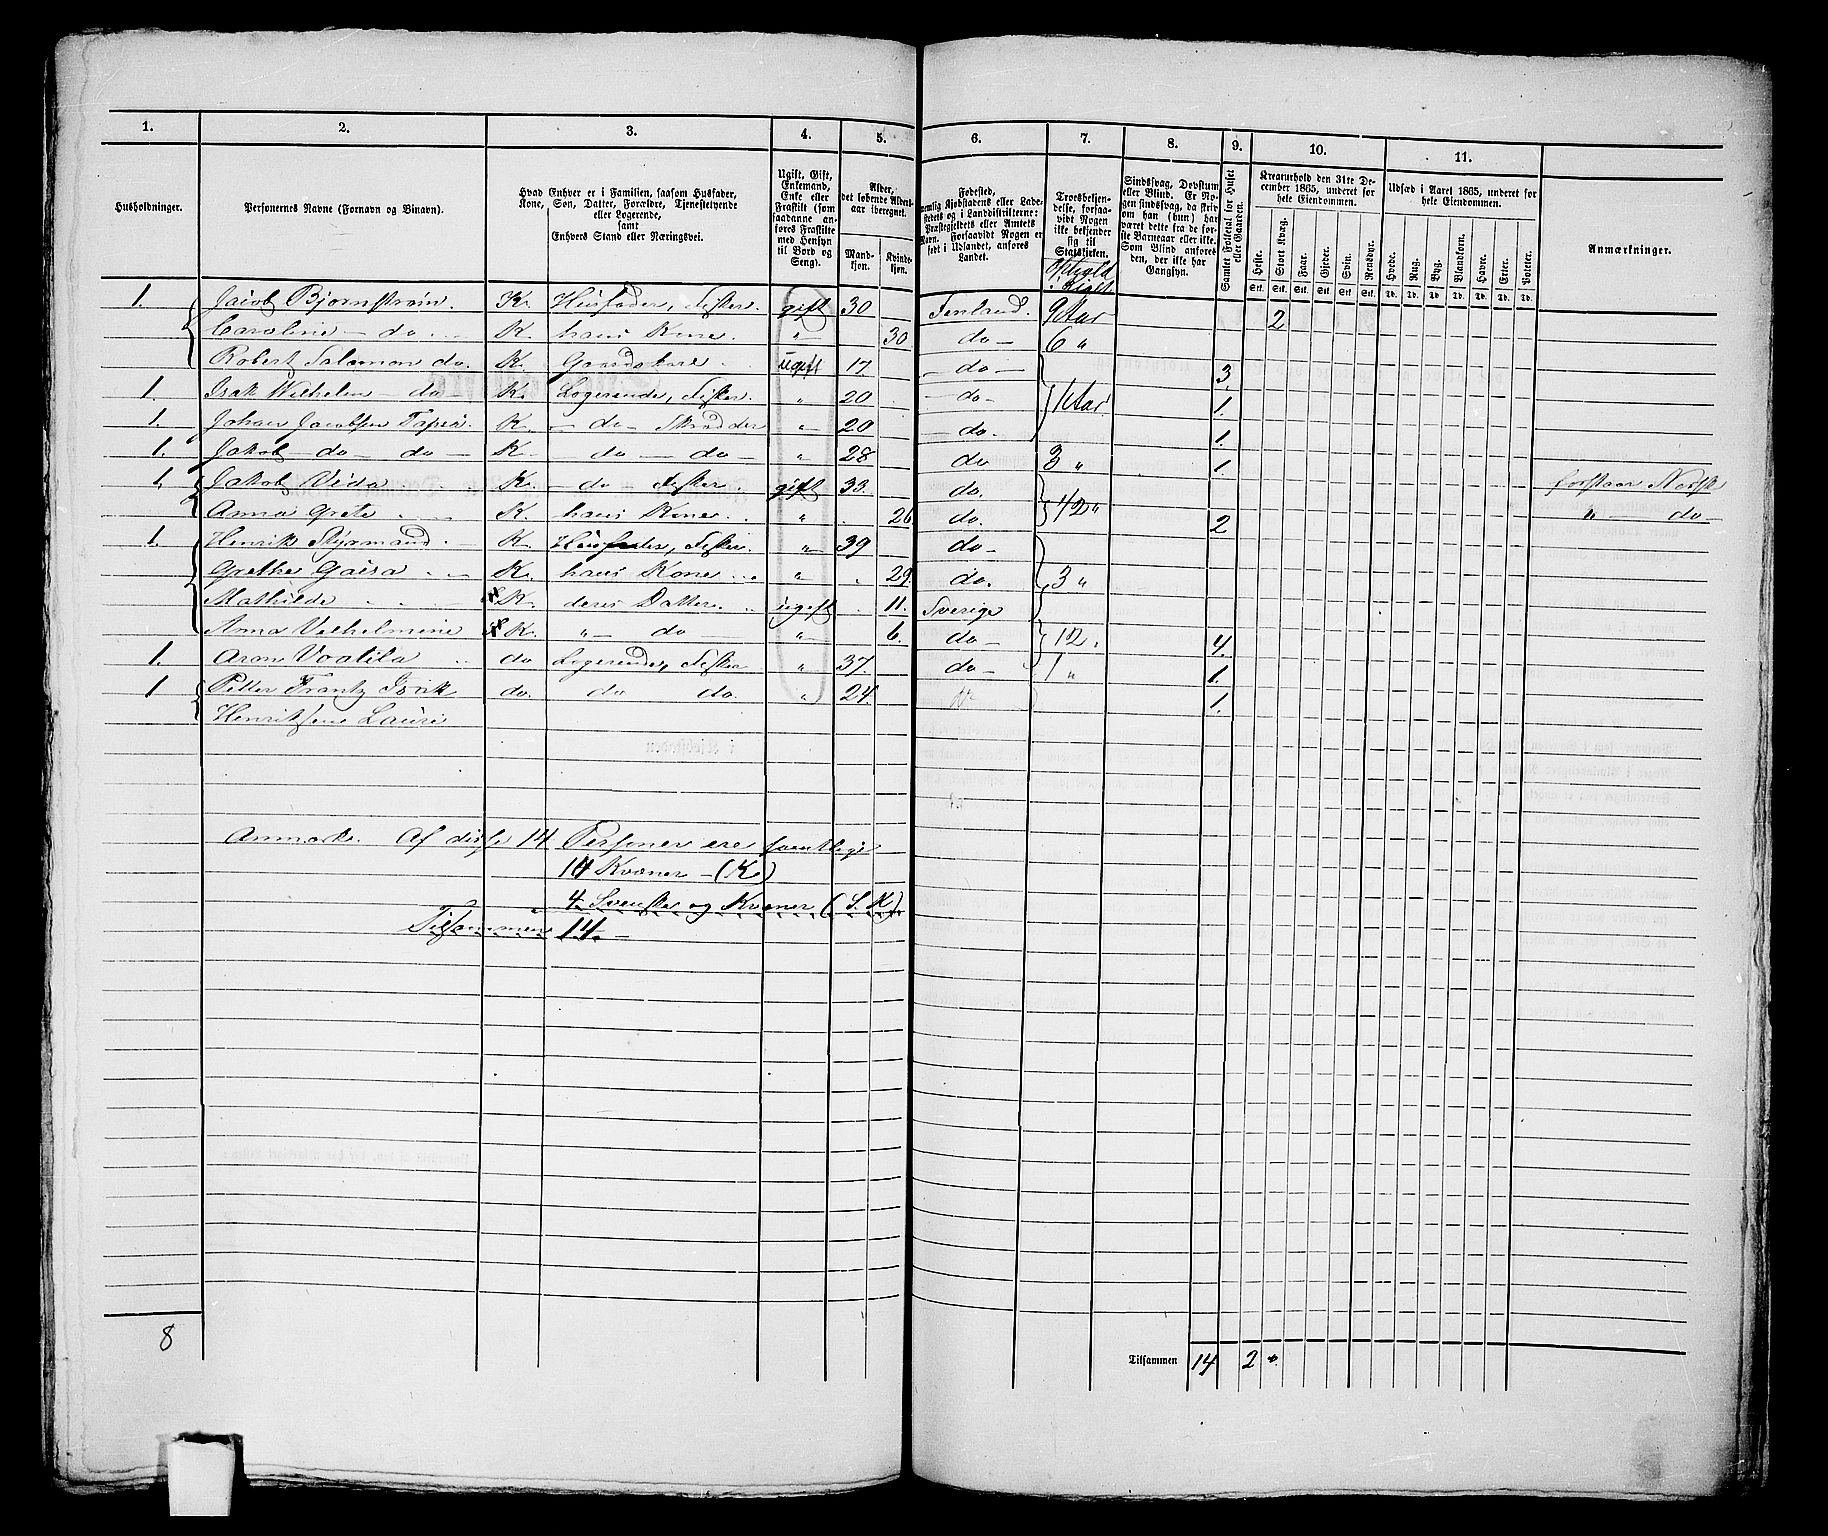 1. 2. 3. 4. 5. 6. 7. 8. 9. 10. 11.
Husholdninger.
Personernes Navne (Fornavn og Binavn).
Hvad Enhver er i Familien, saasom Husfader, Kone, Søn, Datter, Forældre, Tjenestetyende eller Logerende, samt Enhvers Stand eller Næringsvei.
Ugift, Gift, Enkemand, Enke eller Fraskilt (som saadanne anføres Fraskilte med Hensyn til Bord og Seng).
Alder, det løbende Aldersaar iberegnet.
Mandkjøn. Kvindekjøn.
Fødested, nemlig Kjøbstadens eller Ladestedets og i Landdistrikterne: Præstegjeldets eller Amtets Navn. Forsaavidt Nogen er født i Udlandet, anføres Landet.
Trosbekjendelse, forsaavidt Nogen ikke bekjender sig til Statskirken.
Sindssvag, Døvstum eller Blind. Er Nogen sindssvag, da skriv om han (hun) har været dette fra de første Barneaar eller ikke. Som Blind anføres den, der ikke har Gangsyn.
Samlet Folketal for Huset eller Gaarden.
Kreaturhold den 31te December 1865, underet for hele Eiendommen.
Heste. Stort Kvæg. Faar. Gjeder. Svin. Rensdyr.
Udsæd i Aaret 1865, underet for hele Eiendommen.
Hvede. Rug. Byg. Blandkorn. Havre. Erter. Poteter.
Anmærkninger.
Stk. Stk. Stk. Stk. Stk. Stk. Td. Td. Td. Td. Td. Td. Td.
1. Jacob Bjørnstrøm. K. Husfader, Fisker. gift 30 Finland. 9 Aar 2
Caroline — do K. hans Kone. „ 30 do — 6 „
Robert Salamon do. K. ugift 17 — do — 3.
1. Isak Wilhelm — do K. Logerende, Fisker. „ 20 — do — 1 Aar. 1.
1. Johan Jacobsen K. — do — Skrædder „ 20 — do. 1.
1. Jakob — do — do — K. — do — do — „ 28 do 3 „ 1.
1. Jakob K. — do Fisker. gift 33. do. forstaar Norsk
Anna Grete K. hans Kone „ 26 do. 12 „ 2 „ — do —
1. Henrik Styrmand. K. Husfader, Fisker. „ 39 do —
Grethe Gaisa K. hans Kone „ 29. do. 3 „
Mathilde K. deres Datter. ugift 11. Sverige
Anna Vilhelmine K. „ — do — „ 6. do — 12. 4.
1. Aron do Logerende, Fisker „ 37. do — 1 „ 1.
1 Petter Frantz do. do do. „ 24. 1.
Henriksen Lauri
Anmærk. Af disse 14 Personer ere samtlige
10 Kvæner — (K)
4 Svenske og Kvæner (S. K)
Tilsammen 14. —
8
Tilsammen 14 2